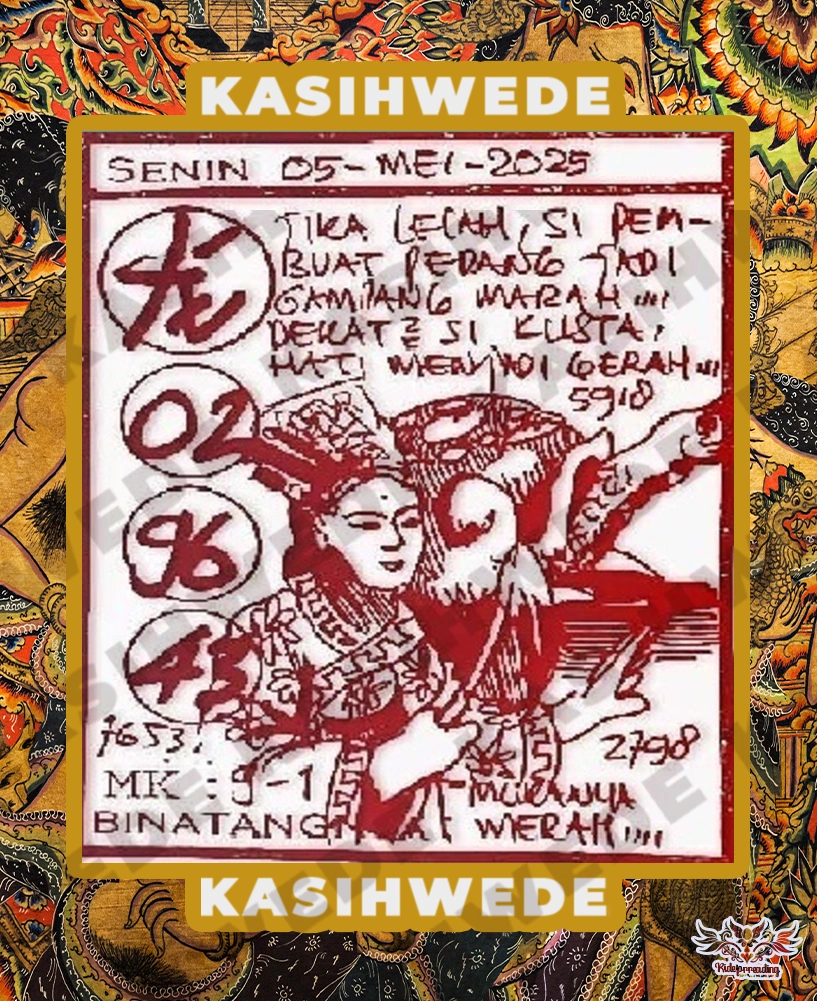 KASIHWEDE
SENIN 05-MEI-2025
龙
JIKA LELAH, SI PEM-
BUAT PEDANG JADI
GAMPANG MARAH ,,,,
DEKAT2 SI KUSTA,
HATI MENJADI GERAH ,,,,
5918
02
96
43
7653
2798
MK : 9-1
MUKANYA
BINATANG
MERAH ,,,,
KASIHWEDE